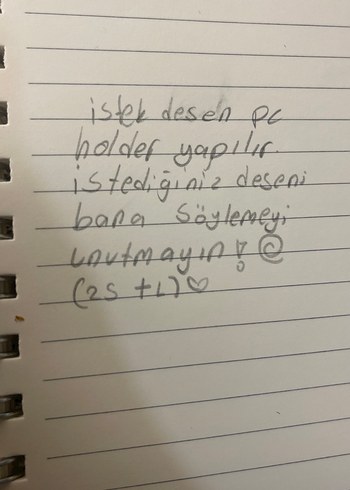 istek desen pc
holder yapılır.
istediğiniz deseni
bana söylemeyi
unutmayın! ☺
(25 +L) ♡